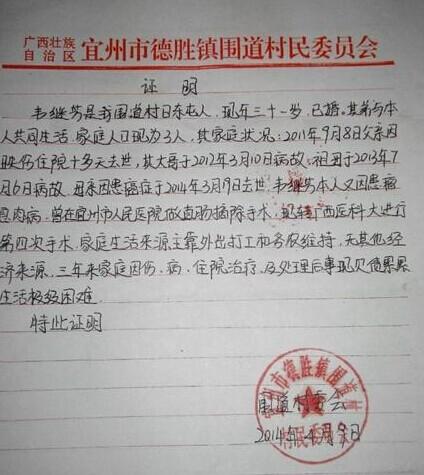 广西壮族
自治区 宜州市德胜镇围道村民委员会
证 明
韦继芳是我围道村日东屯人，现年三十一岁，已婚。其弟与本
人共同生活，家庭人口现为3人，其家庭状况：2011年9月8日父亲因
住院十多天去世，其大哥于2012年3月10日病故；祖母于2013年7
月6日病故，母亲因患癌症于2014年3月19日去世，韦继芳本人又因患癌
息肉病，曾在宜州市人民医院做直肠摘除手术，现转广西医科大进行
第四次手术，家庭生活来源主靠外出打工和务农维持，无其他经
济来源，三年来家庭因伤、病、住院治疗，及处理后事现欠债累累
生活极经困难。
特此证明
围道村委会
2014年4月9日
宜州市德胜镇围道村
村民委员会